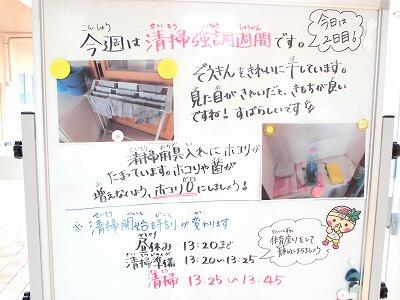 今週は清掃強調週間です。
こんしゅう
せいそう
しゅうかん
今日は
2日目!
ぞうきんをきれいに干しています。
見た目がきれいだと、きもちが良い
ですね! すばらしいです
清掃用具入れにホコリが
たまっています。ホコリや菌が
増えないよう、ホコリ0にしましょう!
※清掃開始時刻が変わります
昼休み 13:20まで
清掃準備 13:20~13:25
清掃 13:25~13:45
体育座りをして
静かにまちましょう